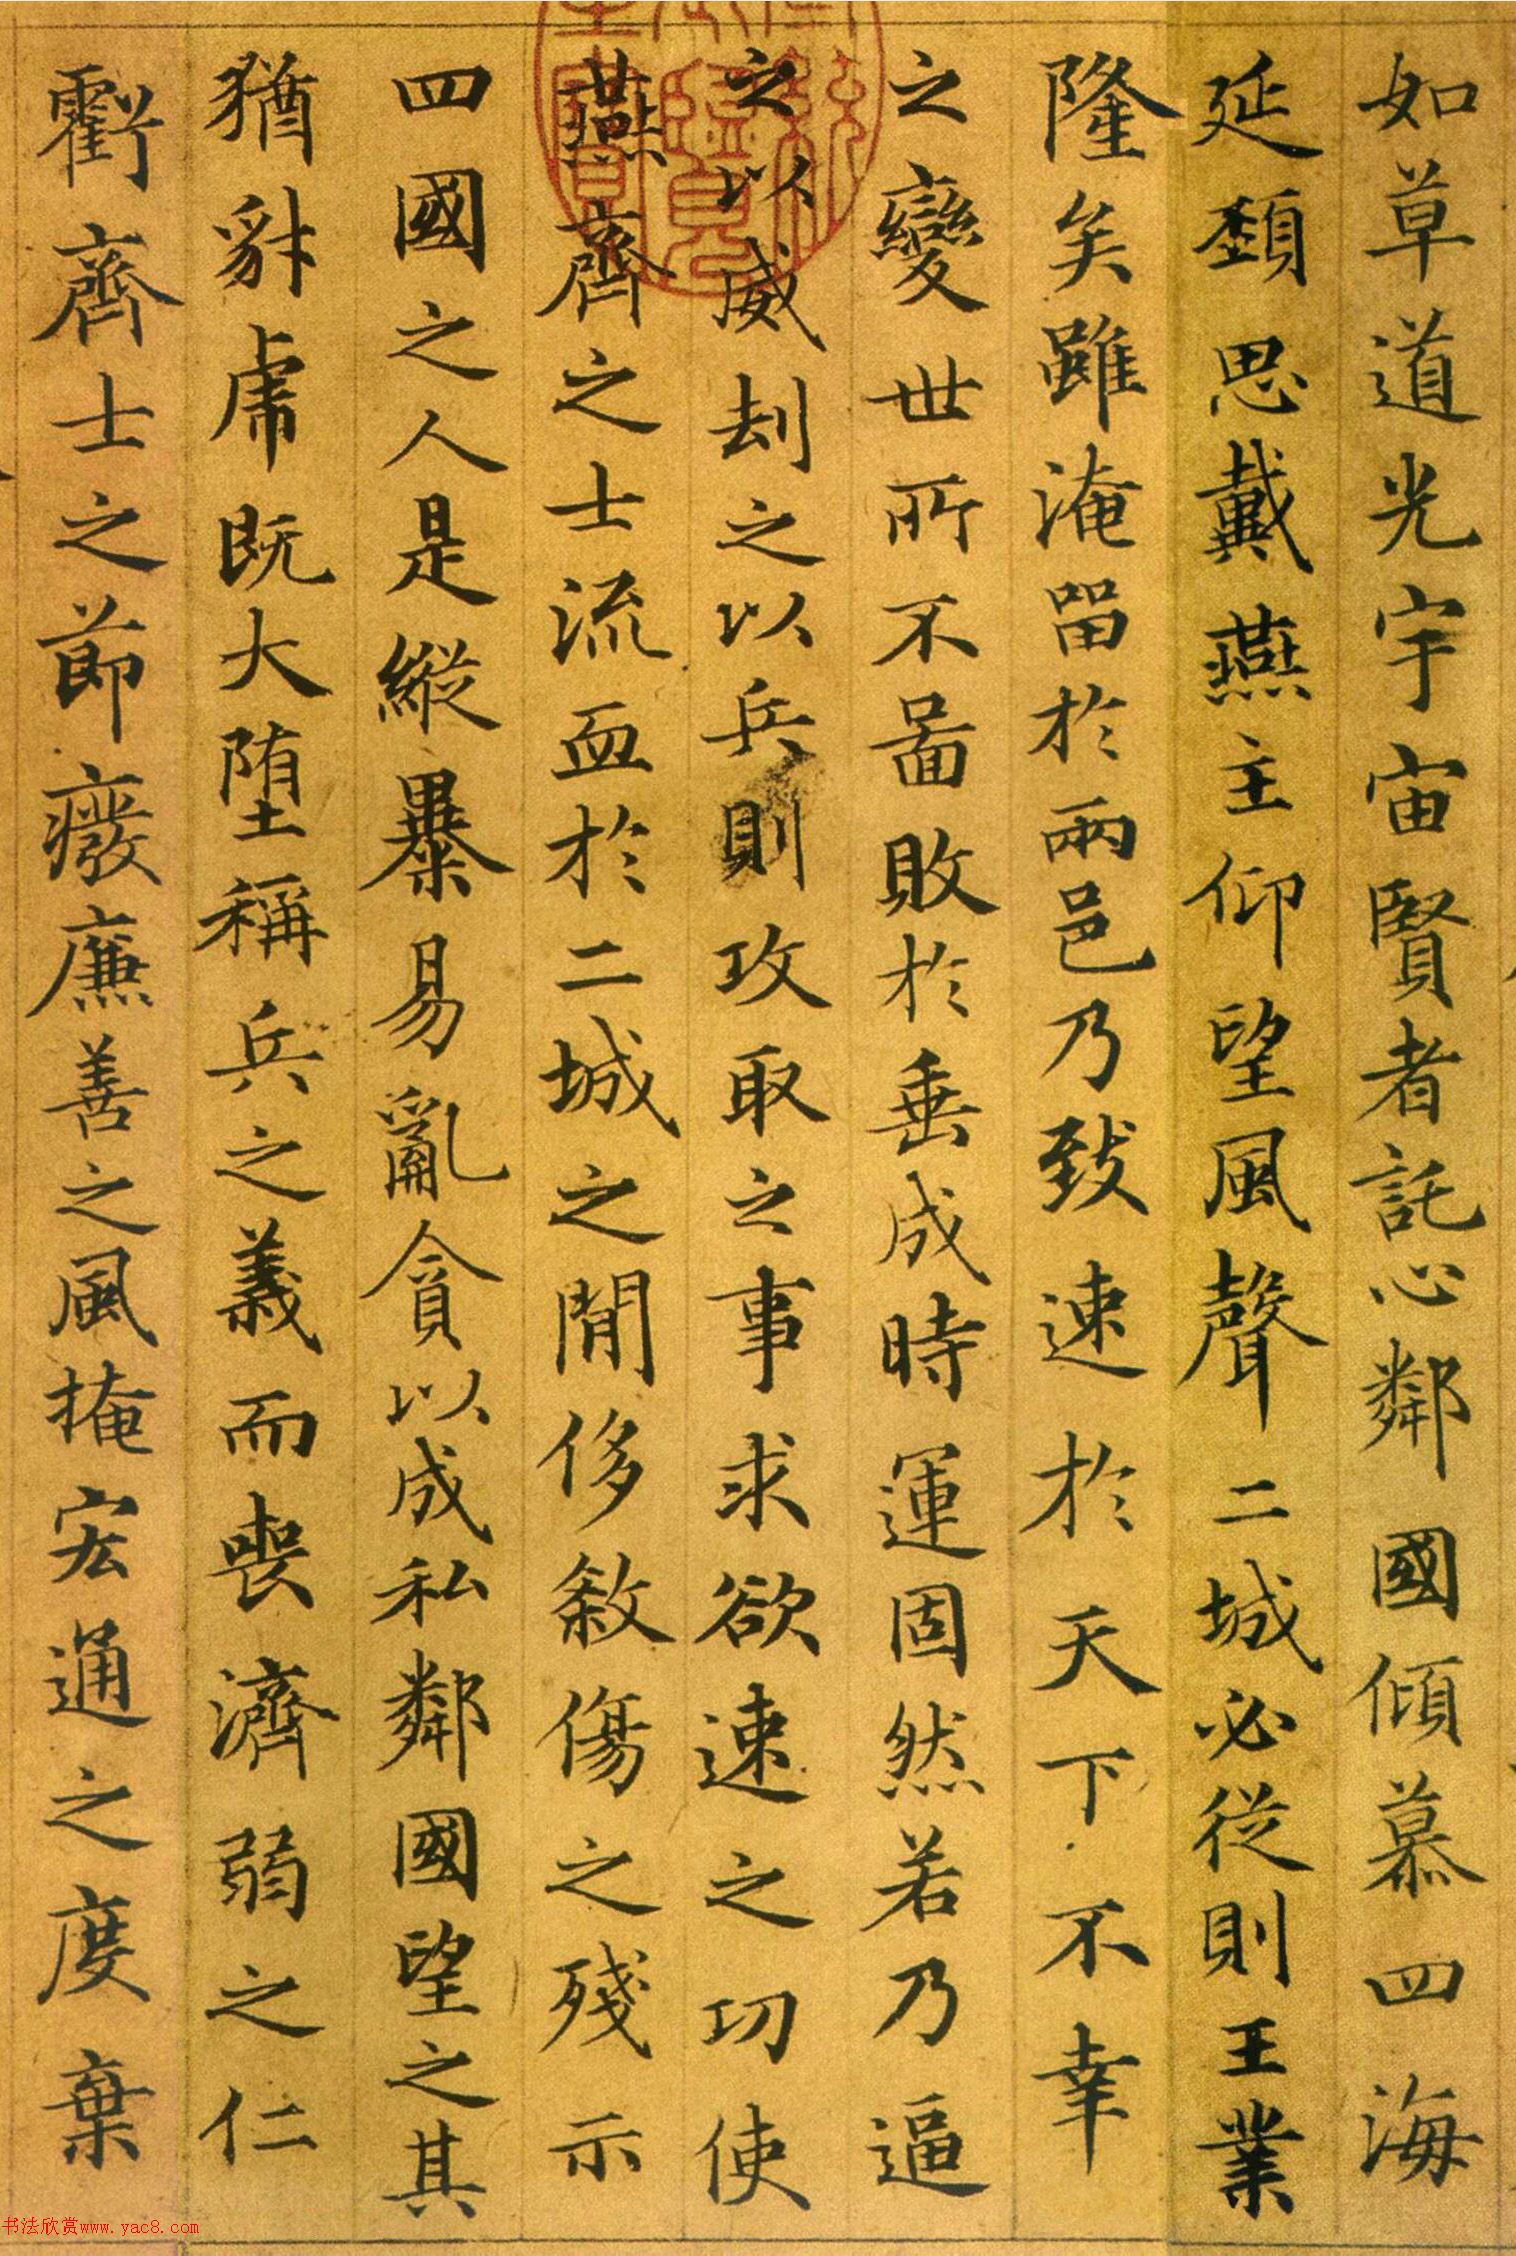 如草道光宇宙賢者託心鄰國傾慕四海
延頸思戴燕主仰望風聲二城必從則王業
隆矣雖淹留於兩邑乃致速於天下不幸
之變世所不啚敗於垂成時運固然若乃逼
之以威刦之以兵則攻取之事求欲速之功使
燕齊之士流血於二城之閒侈敘傷之殘示
四國之人是縱暴易亂貪以成私鄰國望之其
猶豺虎既大墮稱兵之義而喪濟弱之仁
虧齊士之節癈廉善之風掩宏通之度棄
书法欣赏www.yac8.com